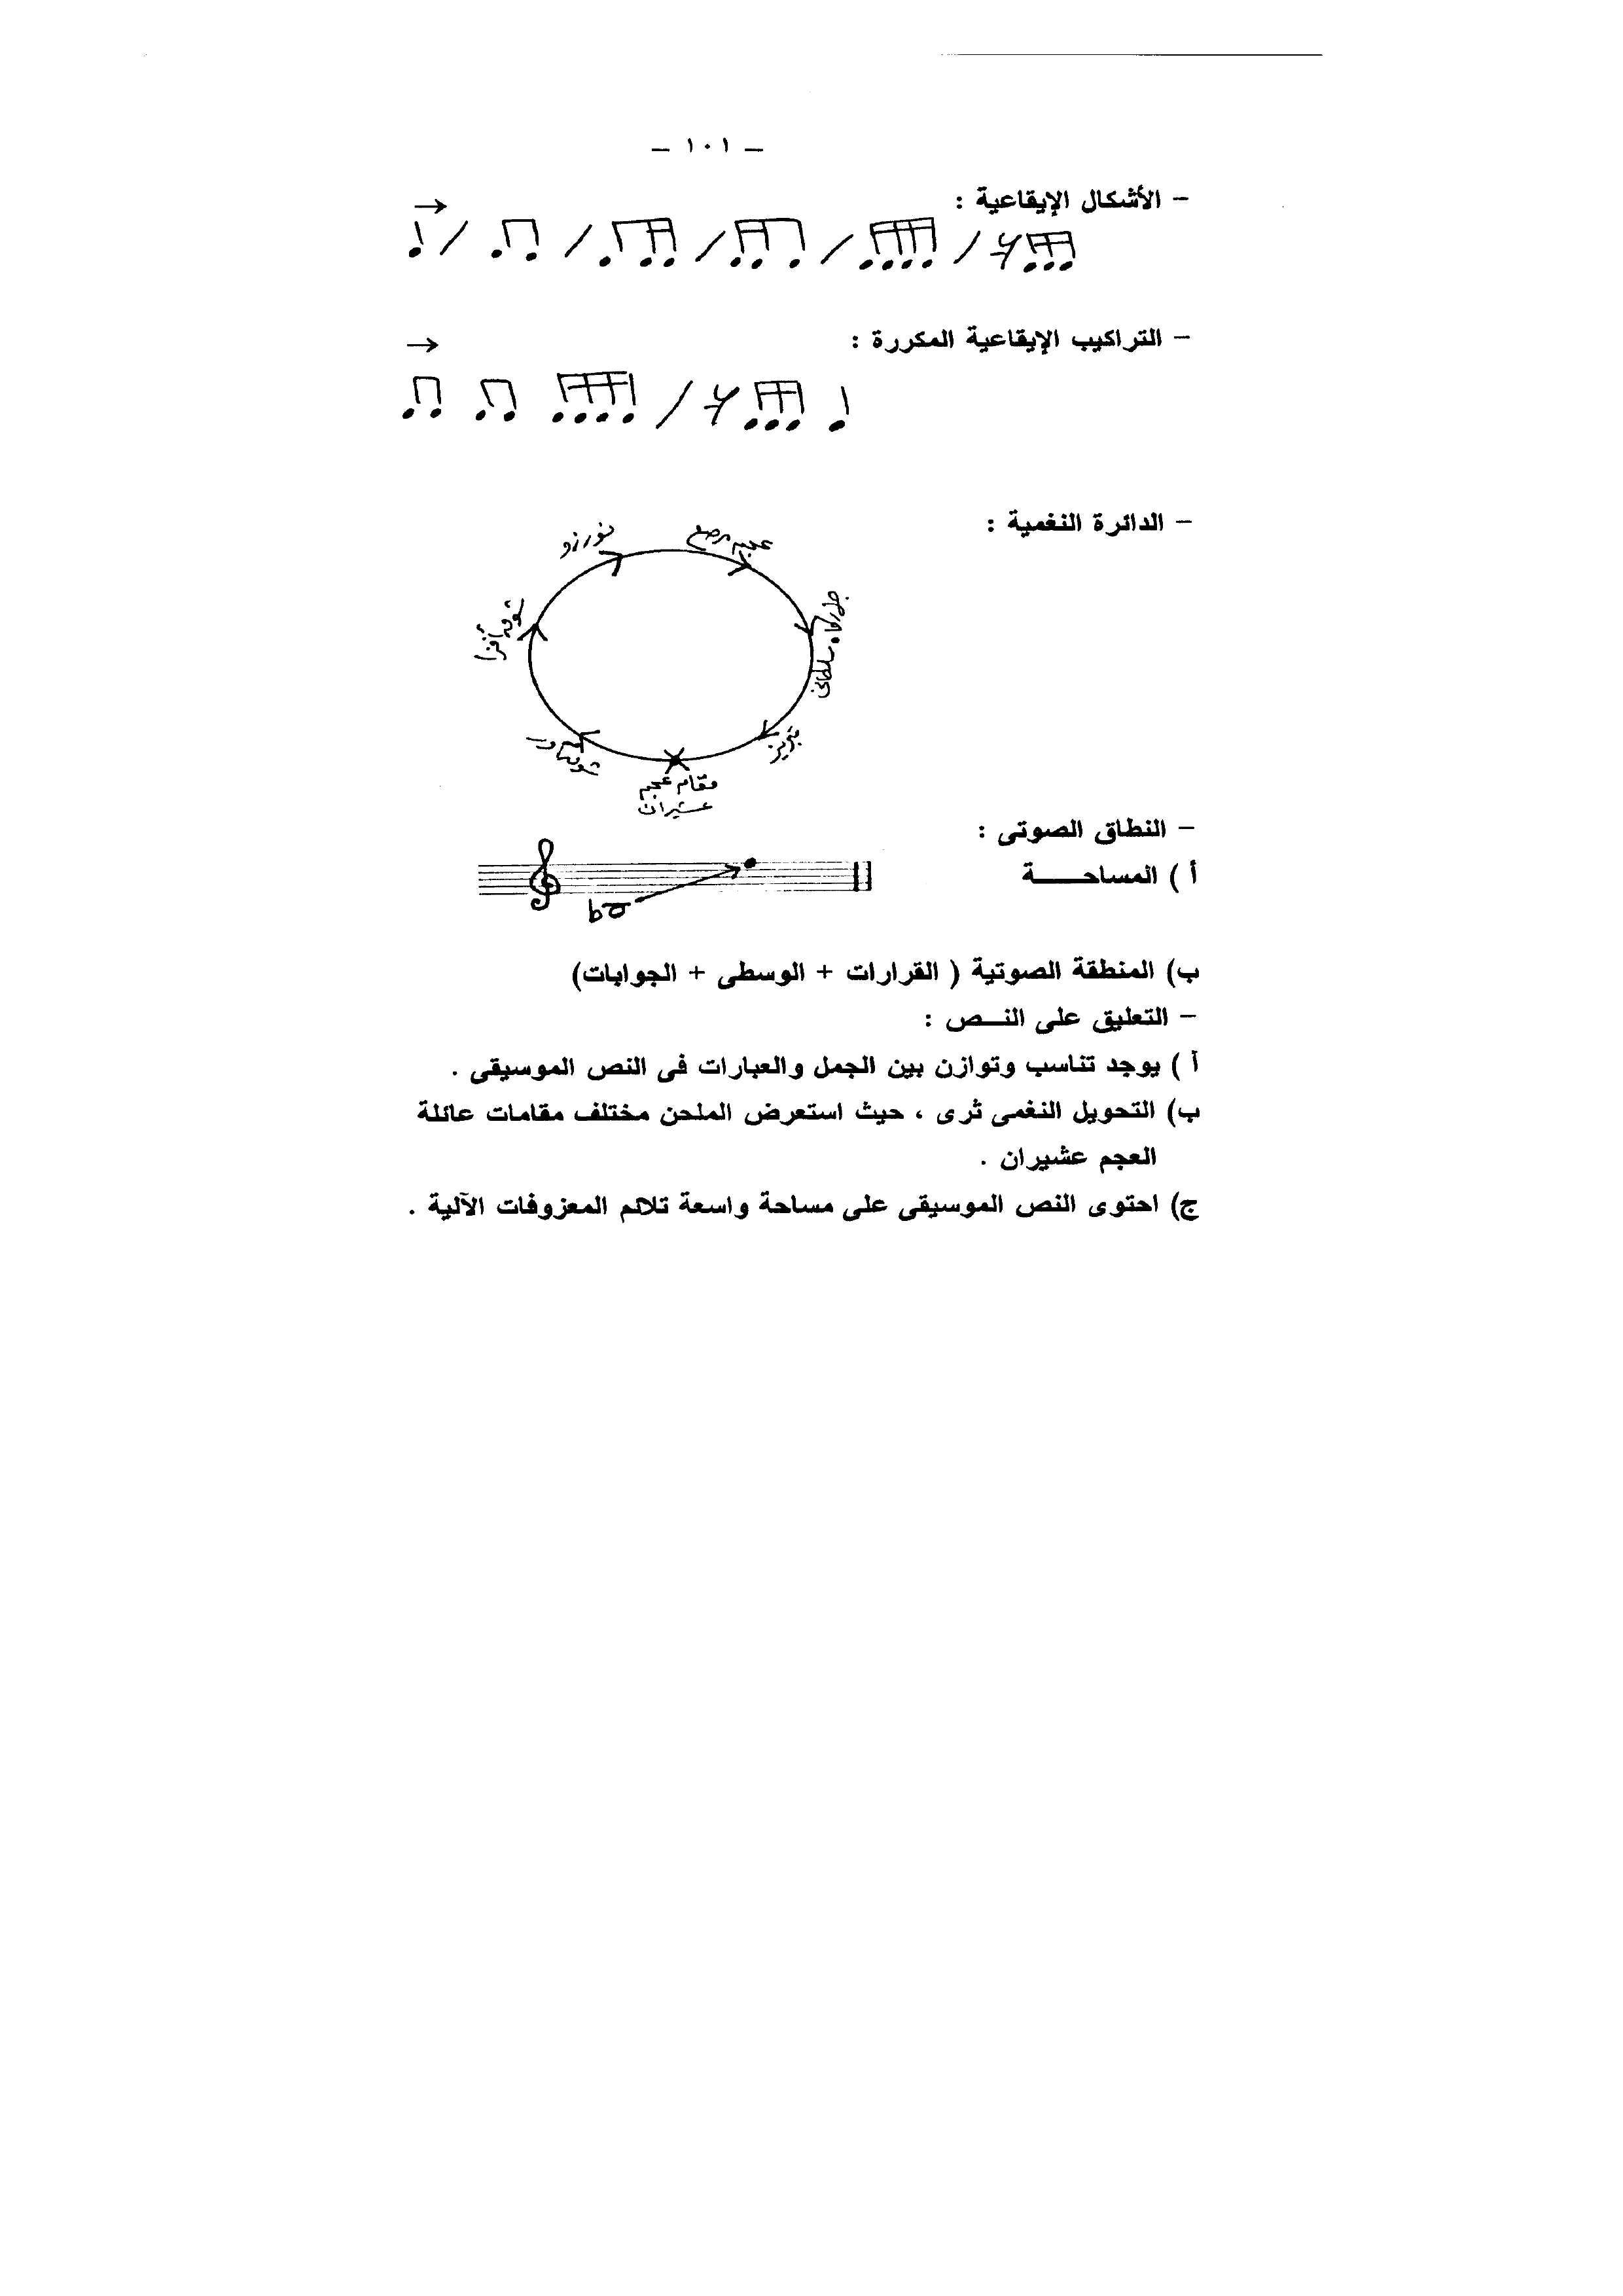 – ١٠١ –
– الأشكال الإيقاعية :
– التراكيب الإيقاعية المكررة :
– الدائرة النغمية :
نورزو
عجم مرصع
شوق أفزا
جهاركاه سلطانى
شوق آور
تبريز
مقام عجم
عشيران
– النطاق الصوتى :
أ ) المساحــــة
ب) المنطقة الصوتية ( القرارات + الوسطى + الجوابات)
– التعليق على النــص :
أ ) يوجد تناسب وتوازن بين الجمل والعبارات فى النص الموسيقى .
ب) التحويل النغمى ثرى ، حيث استعرض الملحن مختلف مقامات عائلة
العجم عشيران .
ج) احتوى النص الموسيقى على مساحة واسعة تلائم المعزوفات الآلية .